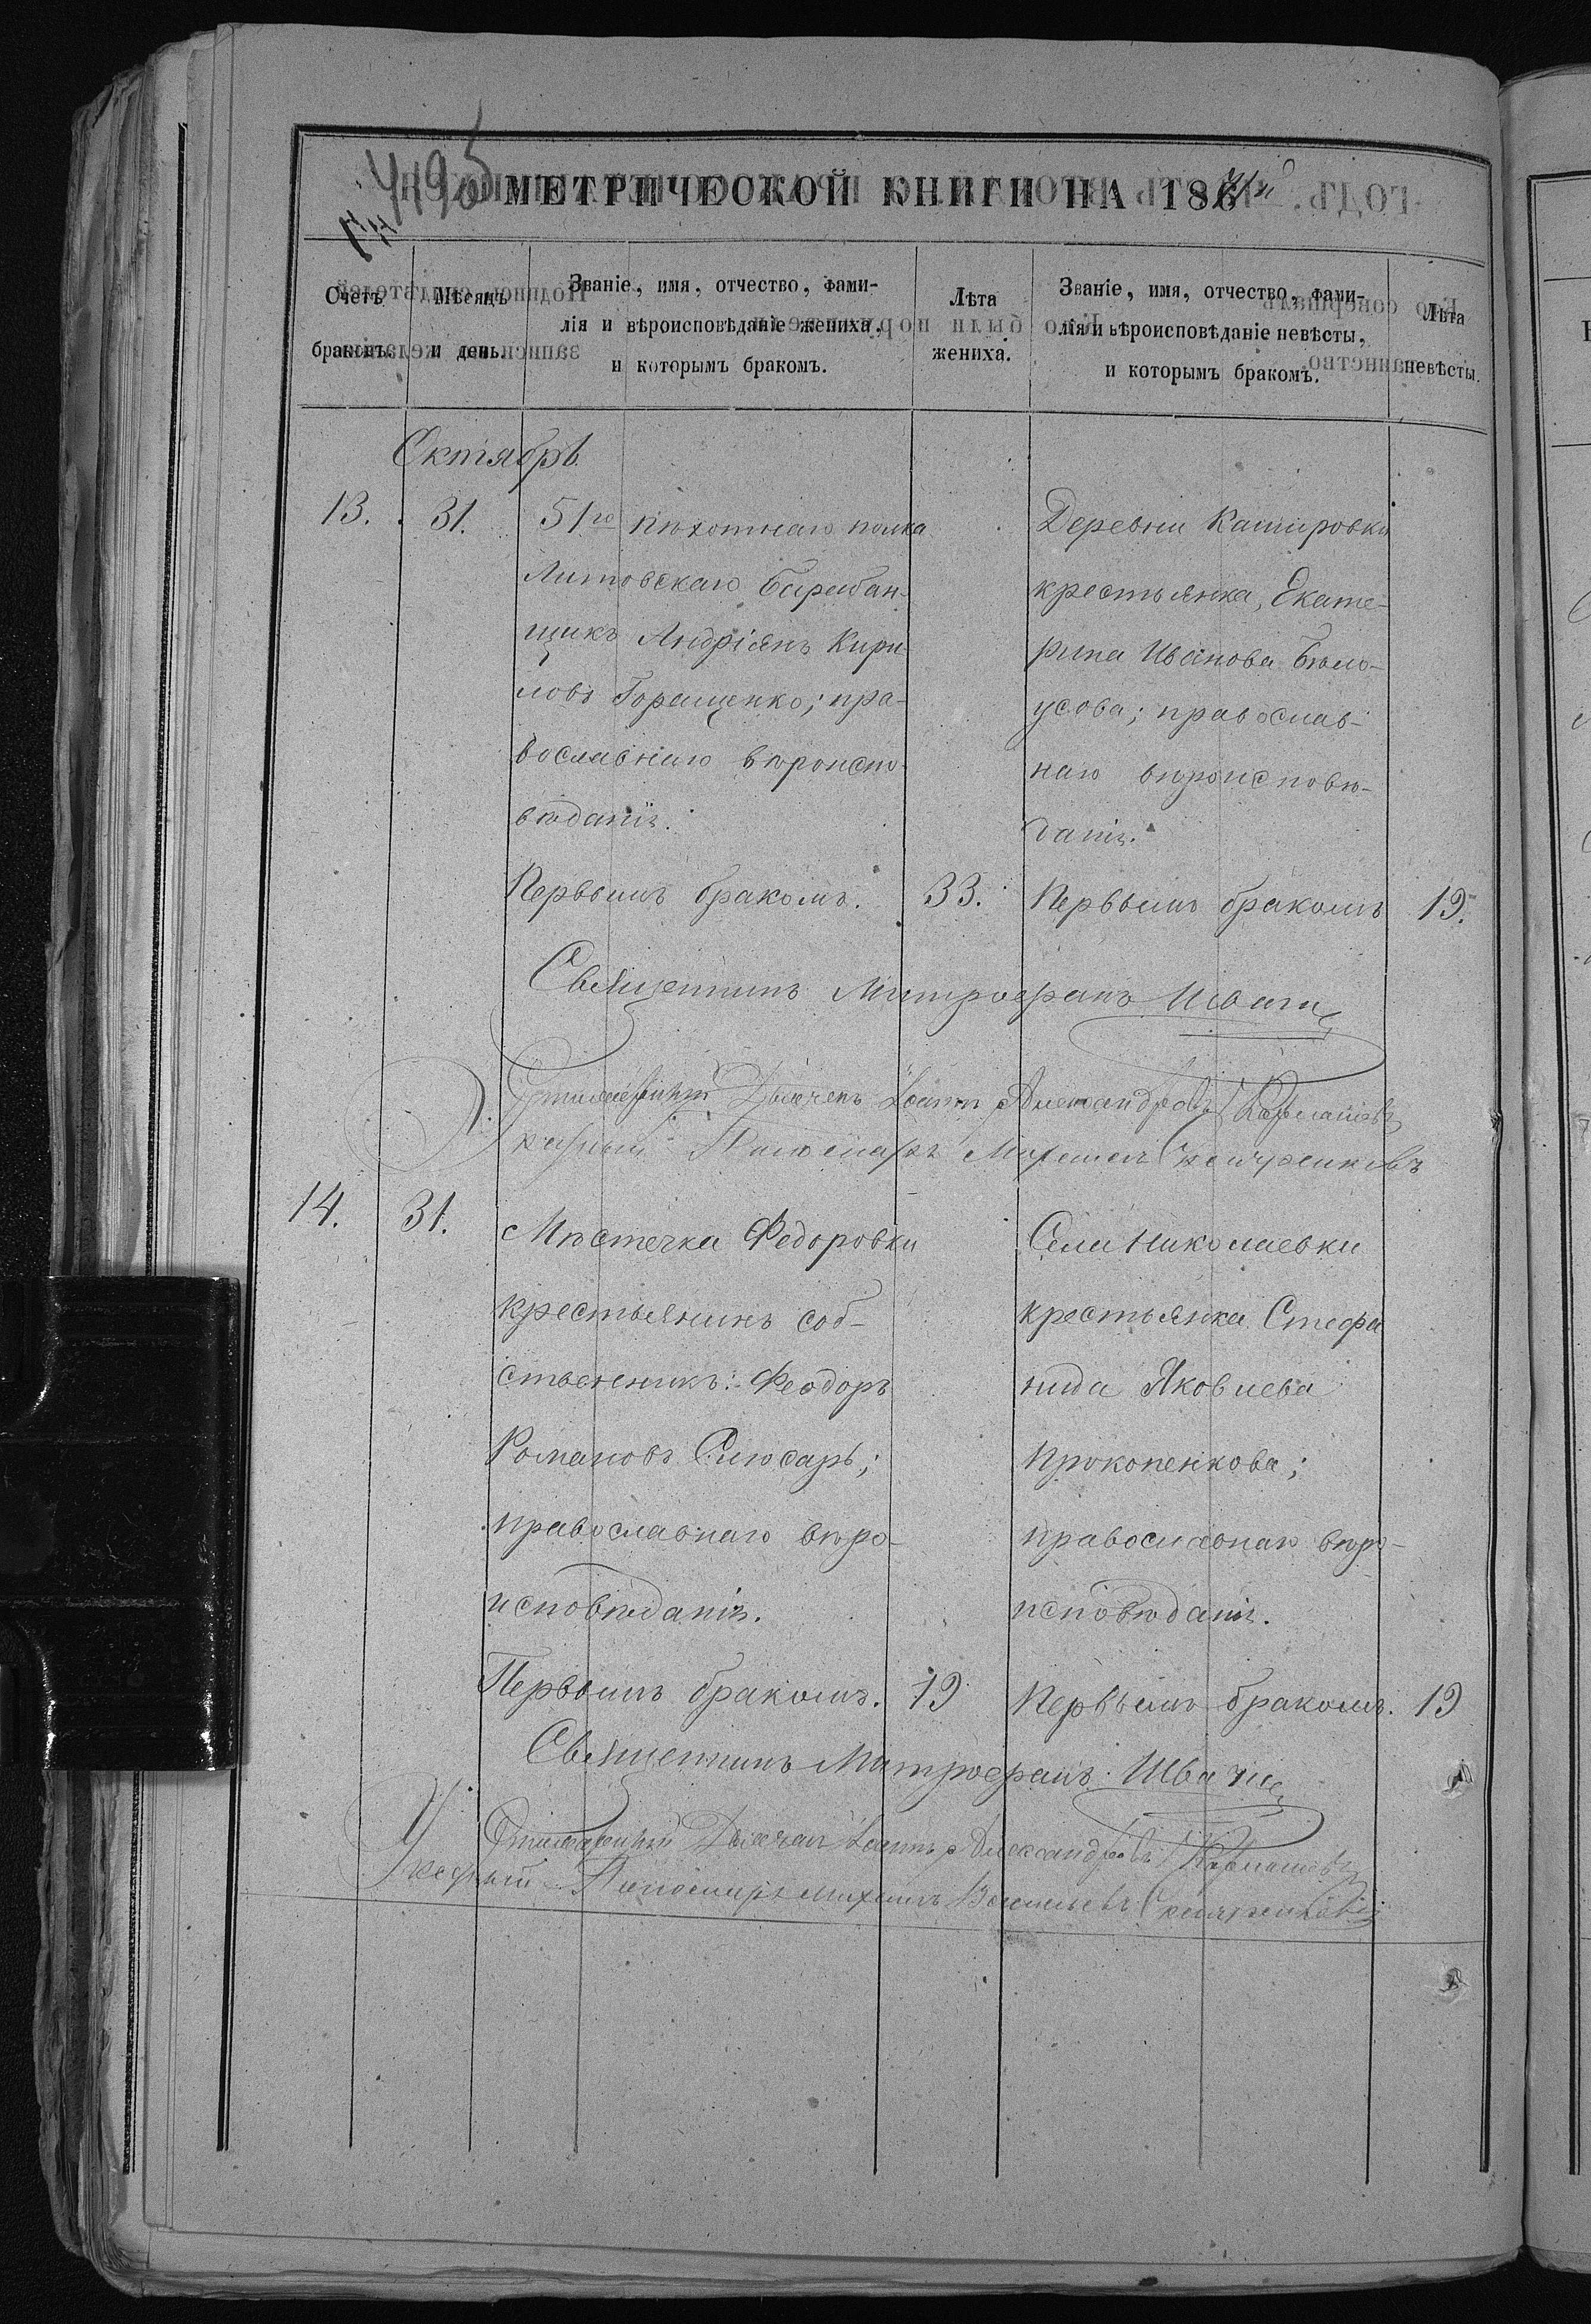 4495
МЕТРИЧЕСКОЙ КНИГИ НА 186
Счетъ браковъ.
Мѣсяцъ и день.
Званіе, имя, отчество, фами-
лія и вѣроисповѣданіе жениха,
и которымъ бракомъ.
Лѣта
жениха.
Званіе, имя, отчество, фами-
лія и вѣроисповѣданіе невѣсты,
и которымъ бракомъ.
Лѣта
невѣсты.
Октябрь
13. 31. 51го пѣхотнаго полка
Литовскаго Барабан-
щикъ Андріянъ Кири
ловъ Горященко; пра-
вославнаго вѣроиспо-
вѣданія.
Первымъ бракомъ. 33.
Деревни Кашировки
крестьянка, Екате-
рина Иванова Бѣло-
усова; православ-
наго вѣроисповѣ-
данія.
Первымъ бракомъ 19.
Священникъ Митрофанъ
Дьячекъ Іоаннъ Александровъ
Пономарь Михаилъ
14. 31. Мѣстечка Федоровки
крестьянинъ соб-
ственникъ: Феодоръ
Романовъ Слюсарь;
православнаго вѣро-
исповѣданія.
Первымъ бракомъ. 19
Села Николаевки
крестьянка Стефа
нида Яковлева
Прокопенкова;
православнаго вѣро-
исповѣданія.
Первымъ бракомъ. 19
Священникъ Митрофанъ
Дьячекъ Іоаннъ Александровъ
Пономарь Михаилъ Васильевъ